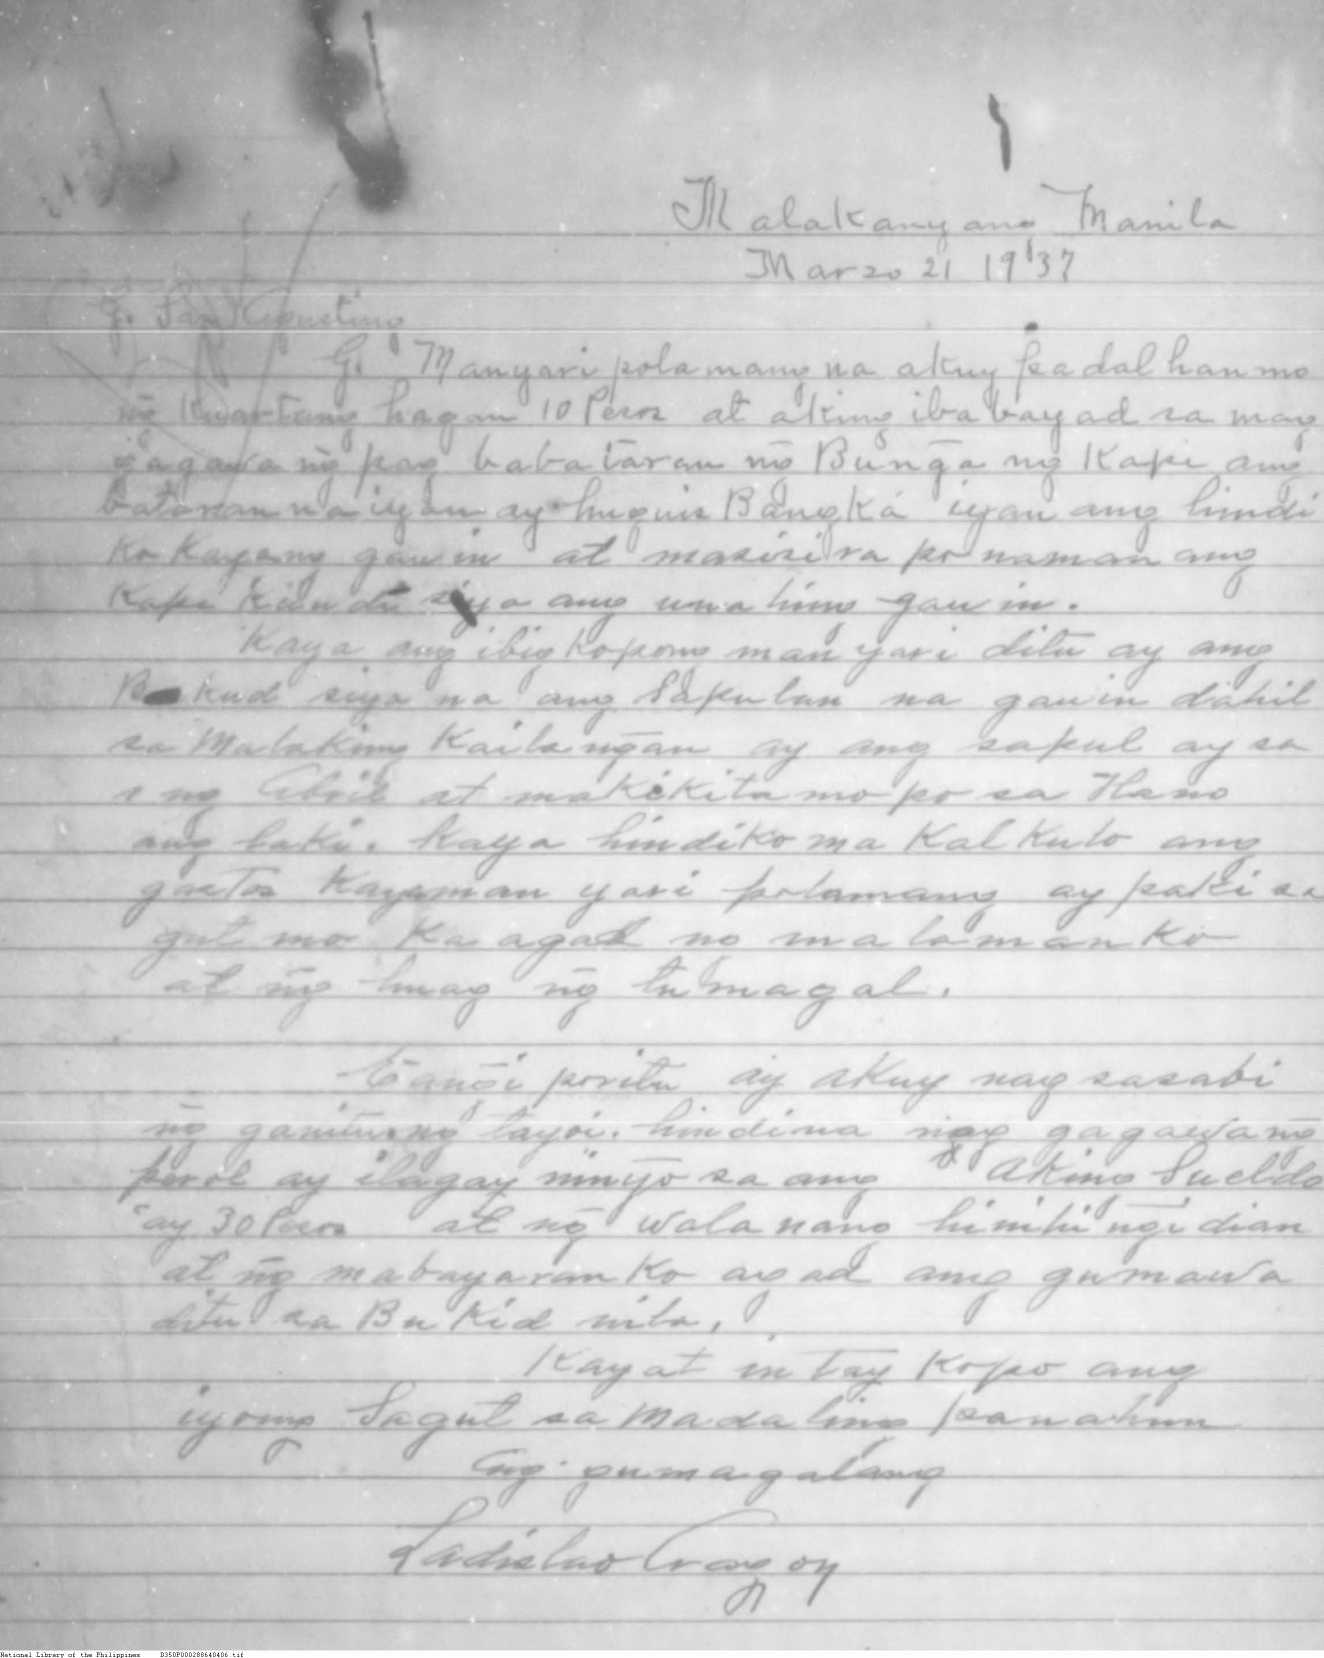 Malakanyang Manila
Marzo 21 1937
G. San Agusting
G. Manyari polamang na akuy padalhan mo
ng Kuartang hagan 10 Peros at aking ibabayad sa mag
gagawa ng pag babataran ng Bunga ng Kapi ang
bataran na iyan ay huguis Bangka iyan ang hindi
Ko Kayang gawin at masisira po naman ang
Kapi Kundi siya ang unahing gawin.
Kaya ang ibig Kopong manyari ditu ay ang
Bakud siya na ang Sapulan na gawin dahil
sa Malaking Kailangan ay ang sapul ay sa
ng Abril at makikita mo po sa Plano
ang laki. Kaya hindi Ko ma Kalkulo ang
gastos Kaya man yari polamang ay paki sa
gut mo Ka agad no malaman Ko
at ng huag ng tumagal.
Tangi poritu ay akuy nag sasabi
ng ganitung tayoi. hindi na nag gagawa ng
perol ay ilagay ninyo sa ang Aking Sueldo
ay 30 Peros at ng wala nang hinihingi dian
at ng mabayaran Ko agad ang gumawa
ditu sa Bukid nila.
Kayat in tay Kopo ang
iyong Sagut sa Madaling panahun
Ang gumagalang
Ladislao
National Library of the Philippines D350P000288640406.tif